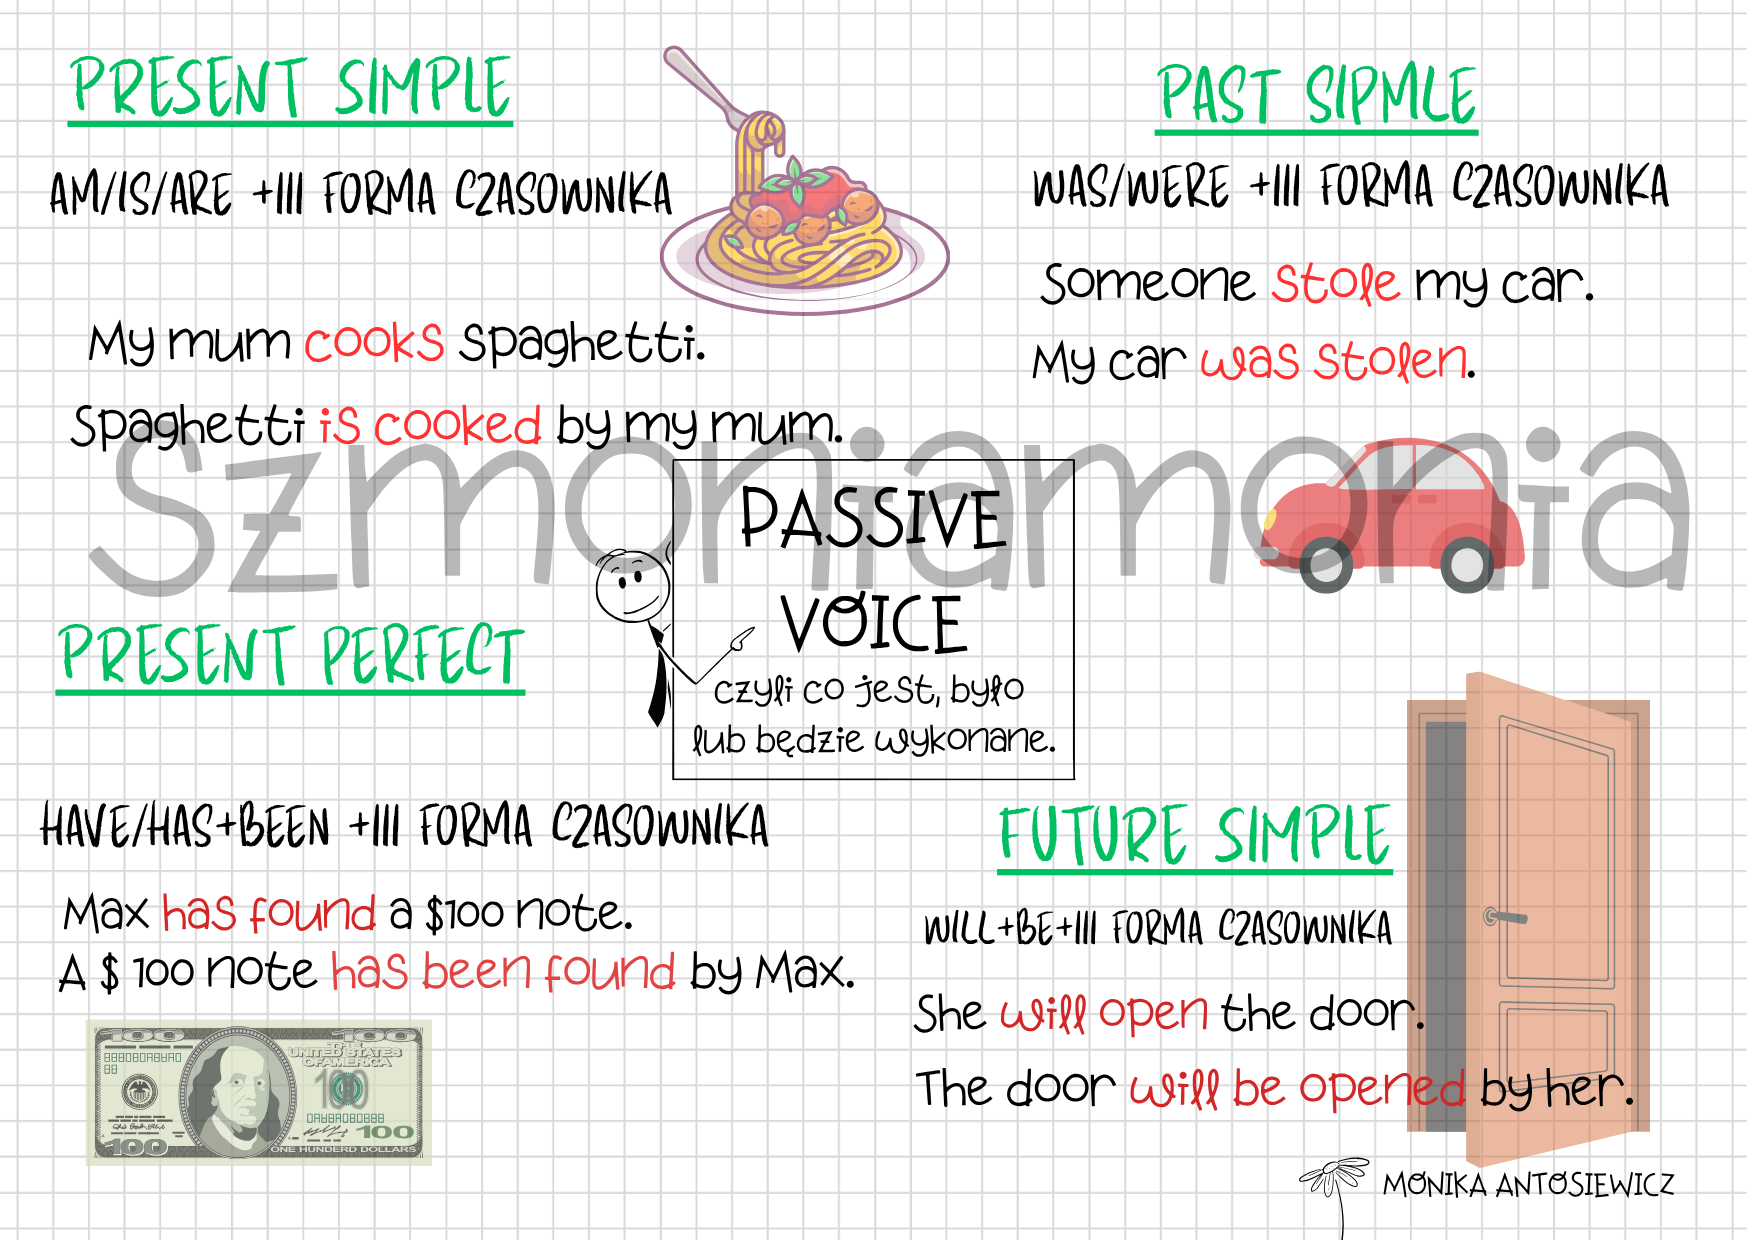 PRESENT SIMPLE
AM/IS/ARE +III FORMA CZASOWNIKA
My mum cooks spaghetti.
Spaghetti is cooked by my mum.
PAST SIPMLE
WAS/WERE +III FORMA CZASOWNIKA
Someone stole my car.
My car was stolen.
Szmoniamonia
PASSIVE
VOICE
czyli co jest, było
lub będzie wykonane.
PRESENT PERFECT
HAVE/HAS+BEEN +III FORMA CZASOWNIKA
Max has found a $100 note.
A $ 100 note has been found by Max.
100 100
THE
UNITED STATES
OF AMERICA
100
100 100
ONE HUNDERD DOLLARS
FUTURE SIMPLE
WILL+BE+III FORMA CZASOWNIKA
She will open the door.
The door will be opened by her.
MONIKA ANTOSIEWICZ